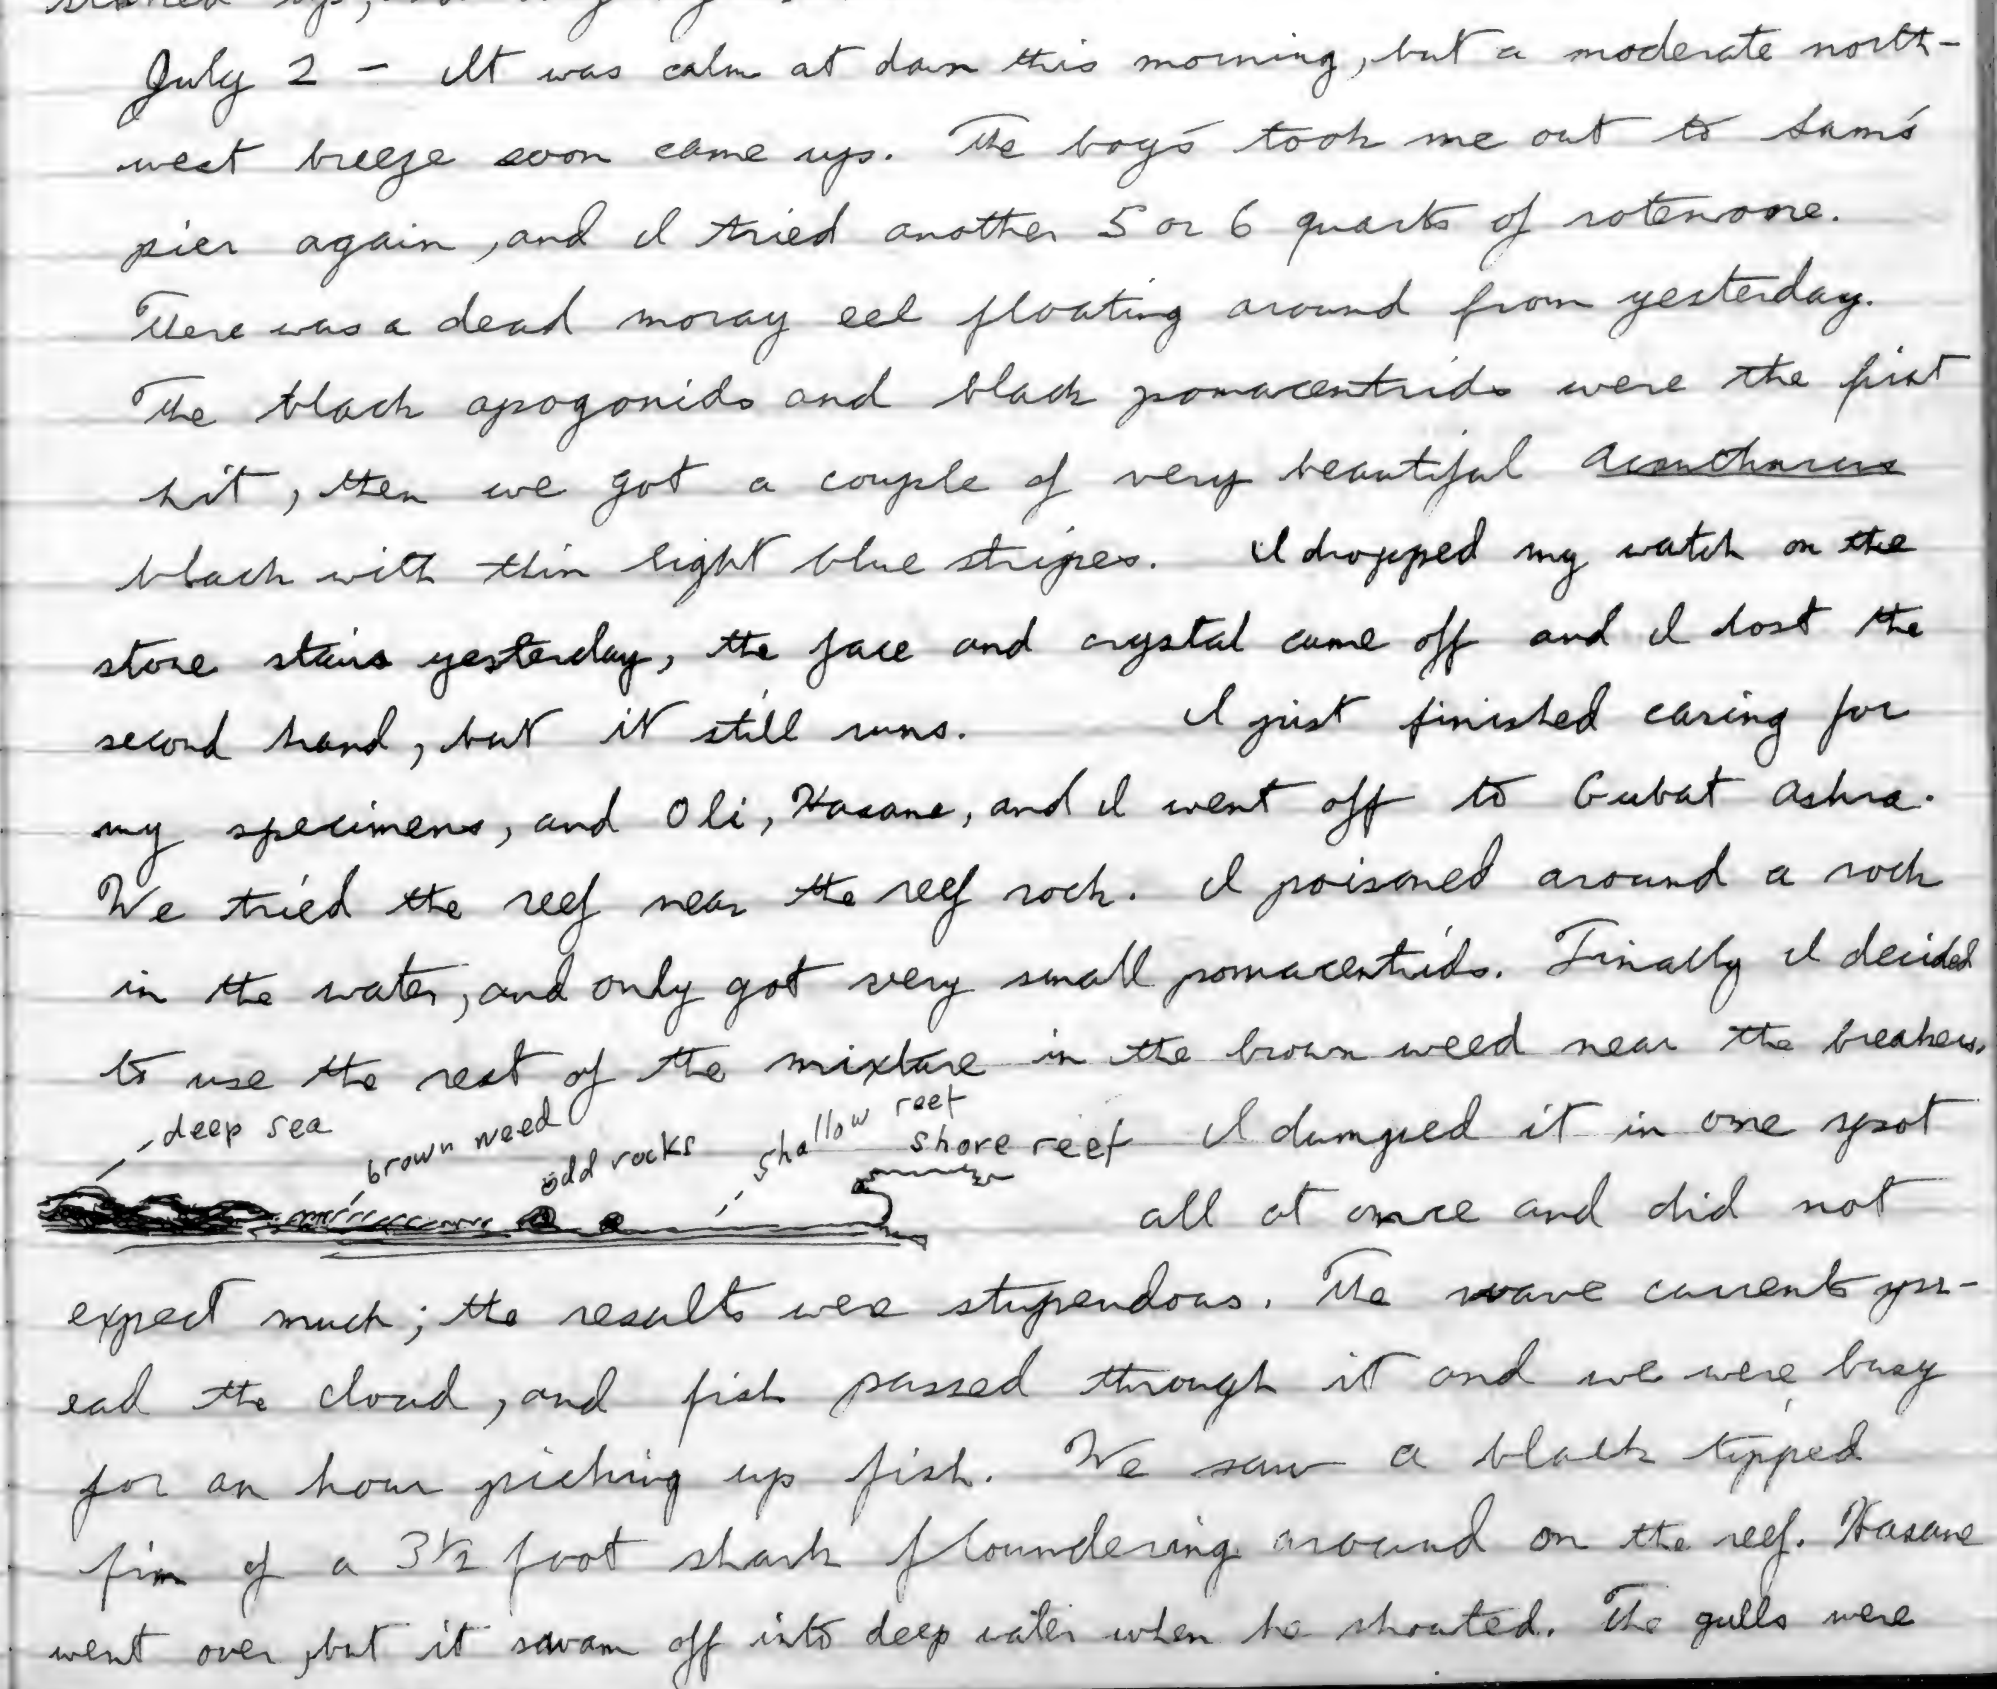 July 2 - It was calm at dawn this morning, but a moderate north-
west breeze soon came up. The boys took me out to Sam's
pier again, and I tried another 5 or 6 quarts of rotenone.
There was a dead moray eel floating around from yesterday.
The black apogonids and black pomacentrids were the first
hit, then we got a couple of very beautiful Acanthurus
black with thin light blue stripes. I dropped my watch on the
stone stairs yesterday, the face and crystal came off and I lost the
second hand, but it still runs. I just finished caring for
my specimens, and Oli, Hasane, and I went off to Gubat Ashra.
We tried the reef near the reef rock. I poisoned around a rock
in the water, and only got very small pomacentrids. Finally I decided
to use the rest of the mixture in the brown weed near the breakers.
deep sea
brown weed
odd rocks
shallow reef
shore reef
I dumped it in one spot
all at once and did not
expect much; the results were stupendous. The wave currents spr-
ead the cloud, and fish passed through it and we were busy
for an hour picking up fish. We saw a black tipped
fin of a 3½ foot shark floundering around on the reef. Hasane
went over, but it swam off into deep water when he shouted. The gulls were